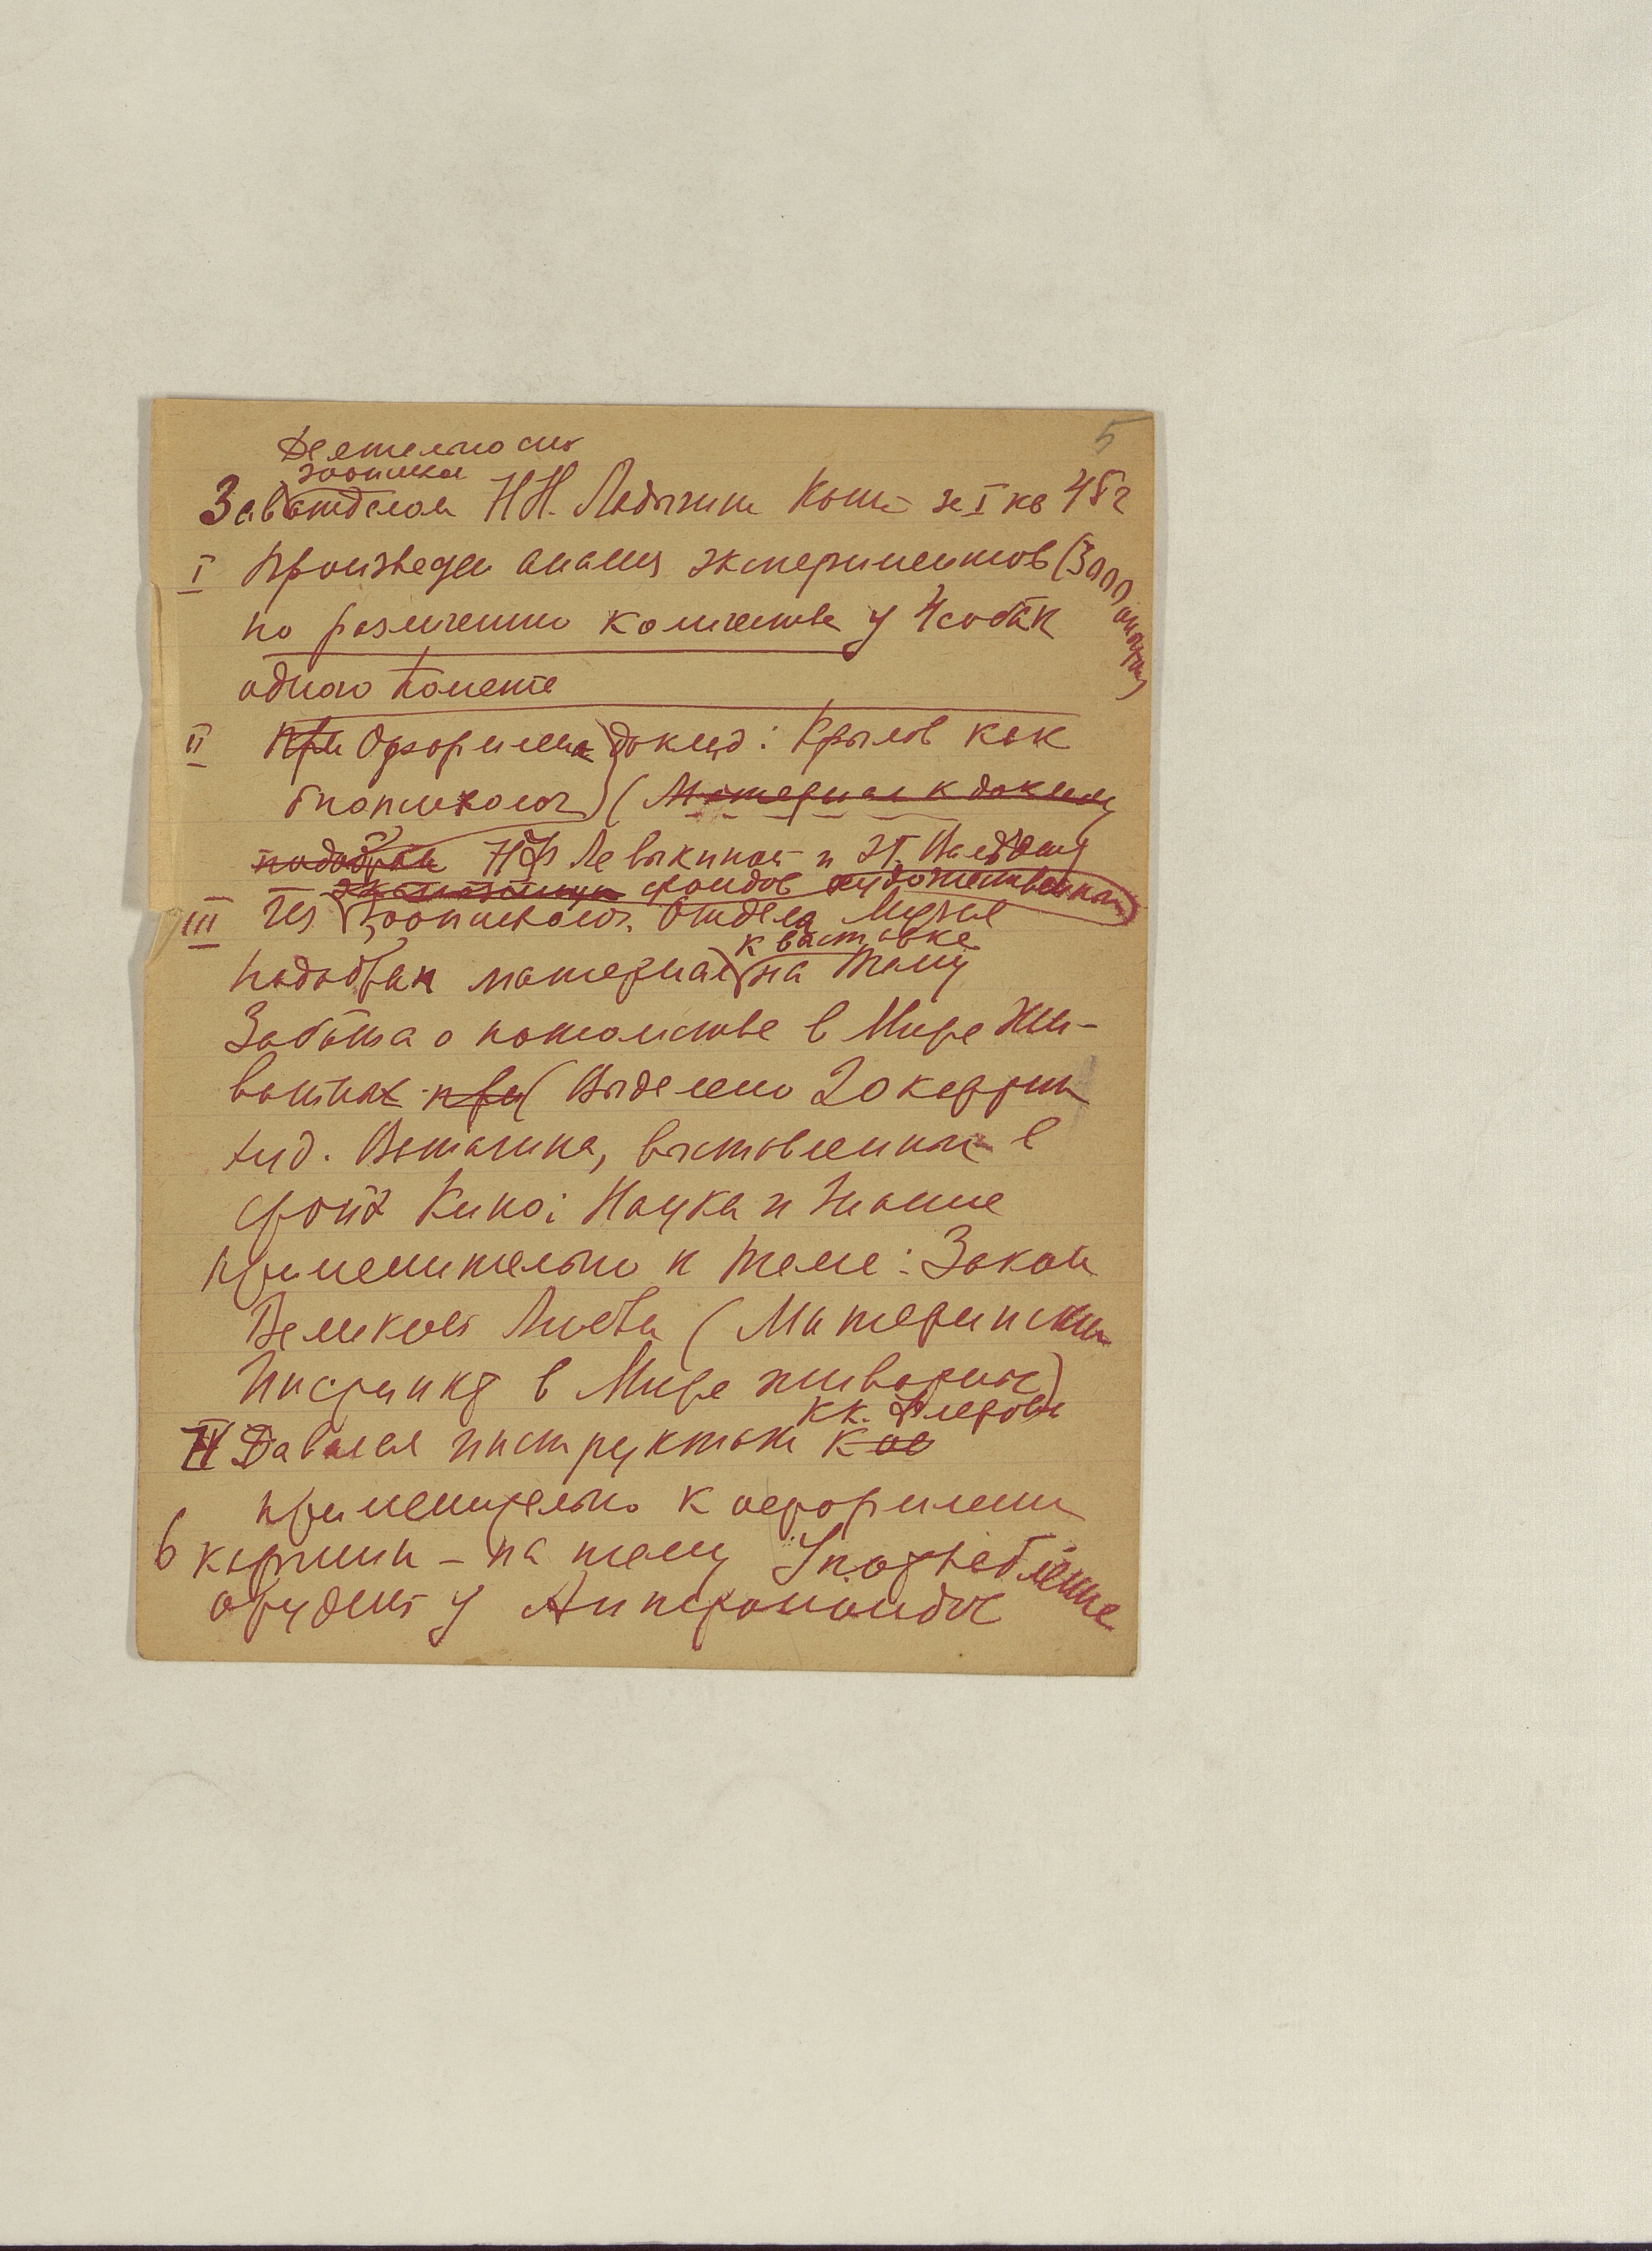 5
Деятельность
зоопсихол
Зав отделом Н.Н. Ладыгин Котс за I кв 45 г
I Произведен анализ экспериментов (3000 опытов)
по различению количества у 4 собак
одного помета
II При Оформлена доклад: Крылов как
зоопсихолог (Материал к докладу
подобран НФ Левыкиной и
III Из экспозиции фондов художественных
Зоопсихолог. Отдела Музея
к выставке
подобран материал на тему
Забота о потомстве в Мире Жи-
вотных при (Выделено 20 картин
худ. Ватагина, выставленных в
фойе Кино: Наука и Знание
применительно к теме: Закон
Великой Любви (Материнский
Инстинкт в Мире животных)
IV Давала инструктаж
КК. Флерову
применительно к оформлению
6 картин – на тему Употребление
орудий у Антропоидов